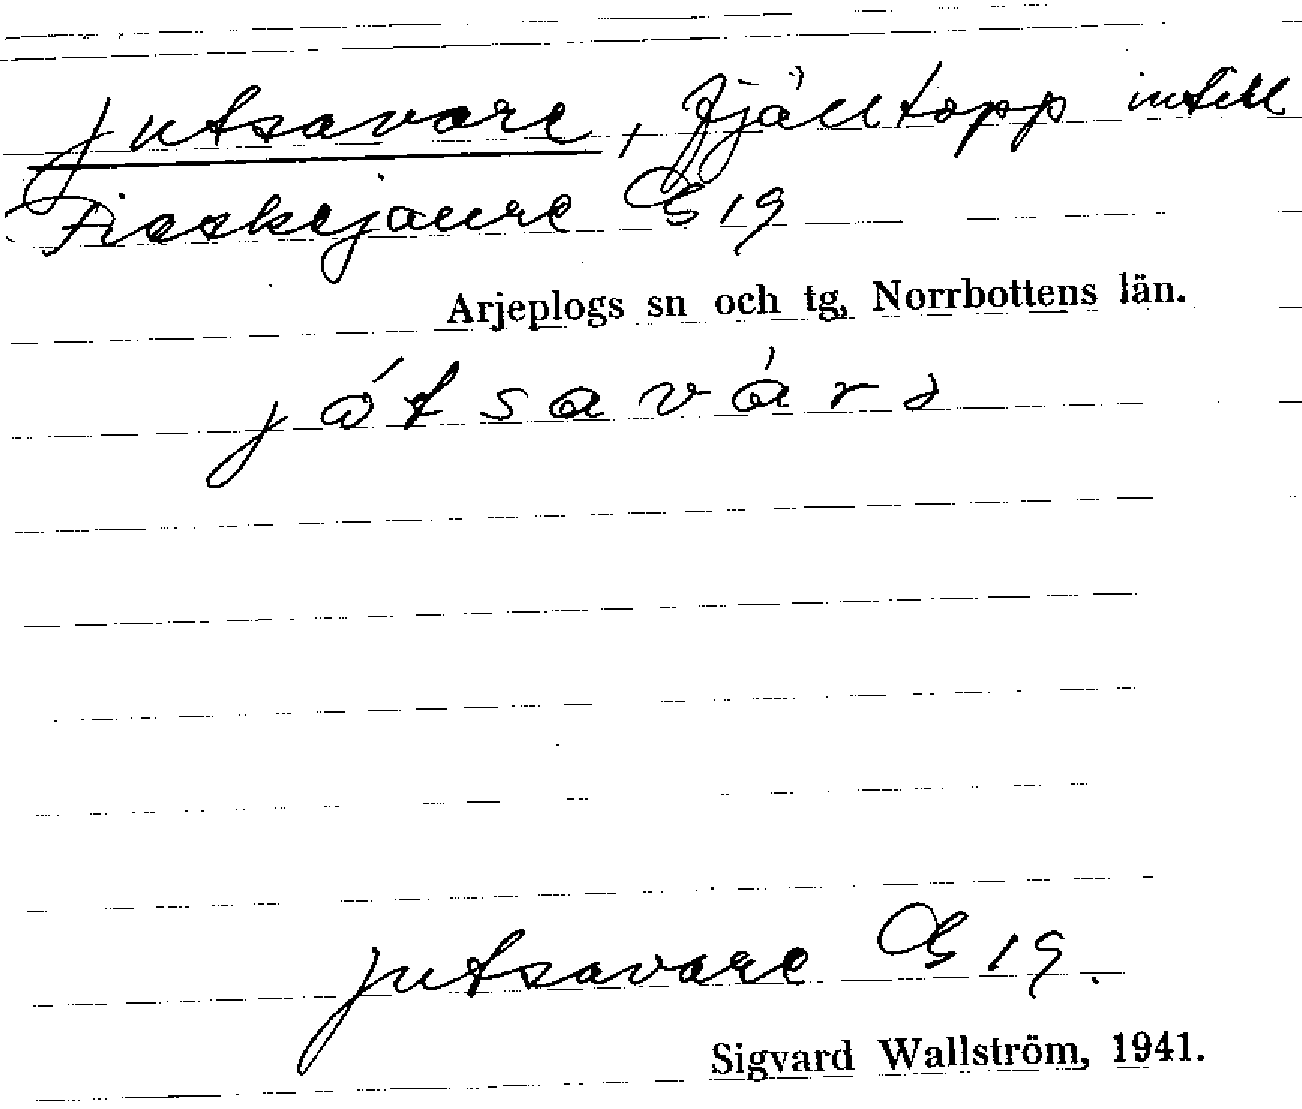 Jutsavare, fjälltopp intill
Fieskejaure G 19
Arjeplogs sn och tg, Norrbottens län.
jótsavárə
Jutsavare G 19.
Sigvard Wallström, 1941.